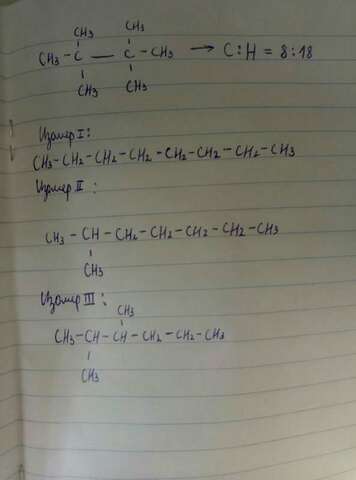 CH₃ CH₃
CH₃ - C — C - CH₃ → C:H = 8:18
CH₃ CH₃
Изомер I:
CH₃-CH₂-CH₂-CH₂-CH₂-CH₂-CH₂-CH₃
Изомер II:
CH₃-CH-CH₂-CH₂-CH₂-CH₂-CH₃
CH₃
Изомер III:
CH₃
CH₃-CH-CH-CH₂-CH₂-CH₃
CH₃